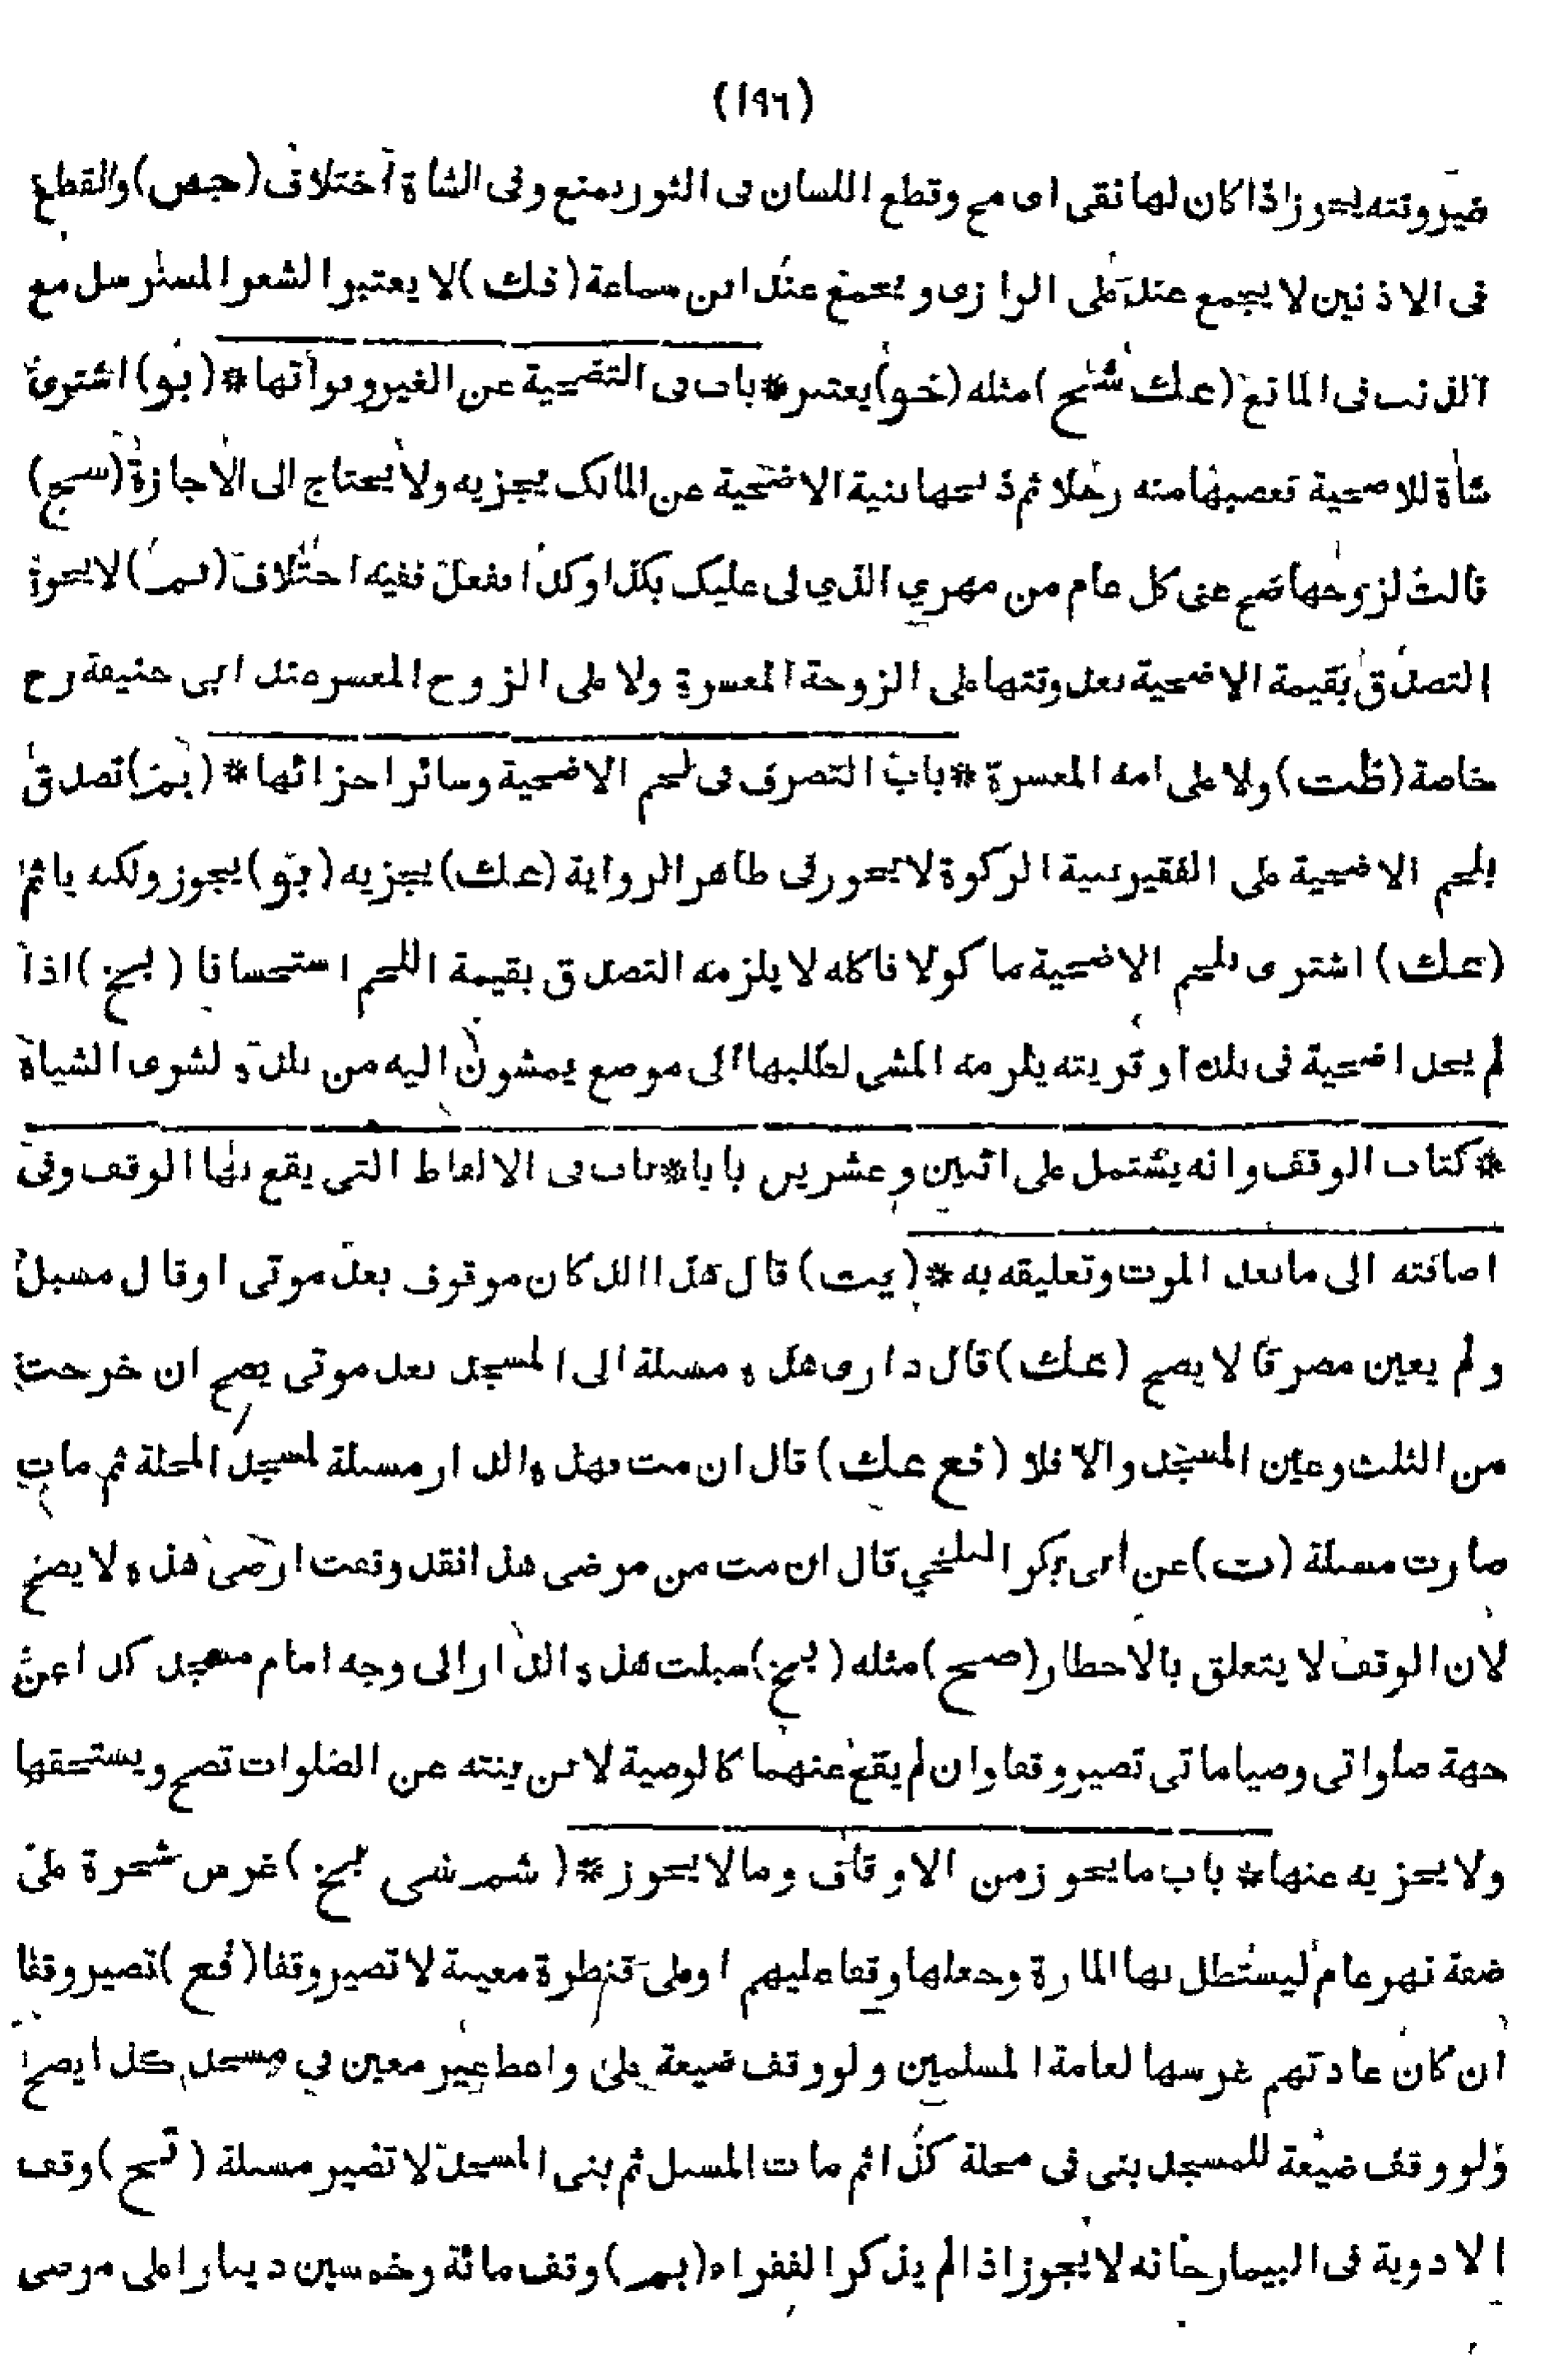 (١٩٦)
غير وقته يجوز اذا كان لها نقى اى مح وقطع اللسان فى الثور يمنع وفى الشاة اختلاف (جص) والقطع
فى الاذنين لا يجمع عند على الرازى ويجمع عند ابن سماعة (فك) لا يعتبر الشعر المسترسل مع
الذنب فى المانع (عك شح) مثله (خو) يعتبر * باب فى التضحية عن الغير وبرأتها * (بو) اشترى
شاة للاضحية فغصبها منه رجلا ثم ذبحها بنية الاضحية عن المالك يجزيه ولا يحتاج الى الاجازة (سج)
قالت لزوجها ضح عنى كل عام من مهري الذي لى عليك بكذا وكذا ففعل ففيه اختلاف (نمر) لا يجوز
التصدق بقيمة الاضحية بعد وقتها على الزوجة المعسرة ولا على الزوج المعسر عند ابى حنيفة رح
خاصة (ظت) ولا على امه المعسرة * باب التصرف فى لحم الاضحية وسائر اجزائها * (بمز) تصدق
بلحم الاضحية على الفقير بنية الزكوة لا يجوز فى ظاهر الرواية (عك) يجزيه (بو) يجوز ولكنه ياثم
(عك) اشترى بلحم الاضحية ماكولا فاكله لا يلزمه التصدق بقيمة اللحم استحسانا (بخ) اذا
لم يجد اضحية فى بلده او قريته يلزمه المشى لطلبها الى موضع يمشون اليه من بلده لشرى الشياة
* كتاب الوقف وانه يشتمل على اثنين وعشرين بابا * باب فى الالفاظ التى يقع بها الوقف وفى
اضافته الى ما بعد الموت وتعليقه به * (يت) قال هذا الدكان موقوف بعد موتى او قال مسبل
ولم يعين مصرفا لا يصح (عك) قال دارى هذه مسبلة الى المسجد بعد موتى يصح ان خرجت
من الثلث وعين المسجد والا فلا (فع عك) قال ان مت فهذه الدار مسبلة لمسجد المحلة ثم مات
صارت مسبلة (ت) عن ابى بكر البلخي قال ان مت من مرضى هذا فقد وقفت ارضى هذه لا يصح
لان الوقف لا يتعلق بالاخطار (صح) مثله (بخ) سبلت هذه الدار الى وجه امام مسجد كذا عن
جهة صلواتى وصياماتى تصير وقفا وان لم يقع عنهما كالوصية لابن بنته عن الصلوات تصح ويستحقها
ولا يجزيه عنها * باب ما يجوز من الاوقاف وما لا يجوز * (شمر شى بخ) غرس شجرة على
ضفة نهر عام ليستظل بها المارة وجعلها وقفا عليهم او على قنطرة معينة لا تصير وقفا (فع) تصير وقفا
ان كان عادتهم غرسها لعامة المسلمين ولو وقف ضيعة على واعظ غير معين في مسجد كذا يصح
ولو وقف ضيعة للمسجد بنى فى محلة كذا ثم مات المسبل ثم بنى المسجد لا تصير مسبلة (قح) وقف
الادوية فى البيمارخانه لا يجوز اذا لم يذكر الفقراء (بمر) وقف مائة وخمسين دينارا على مرضى